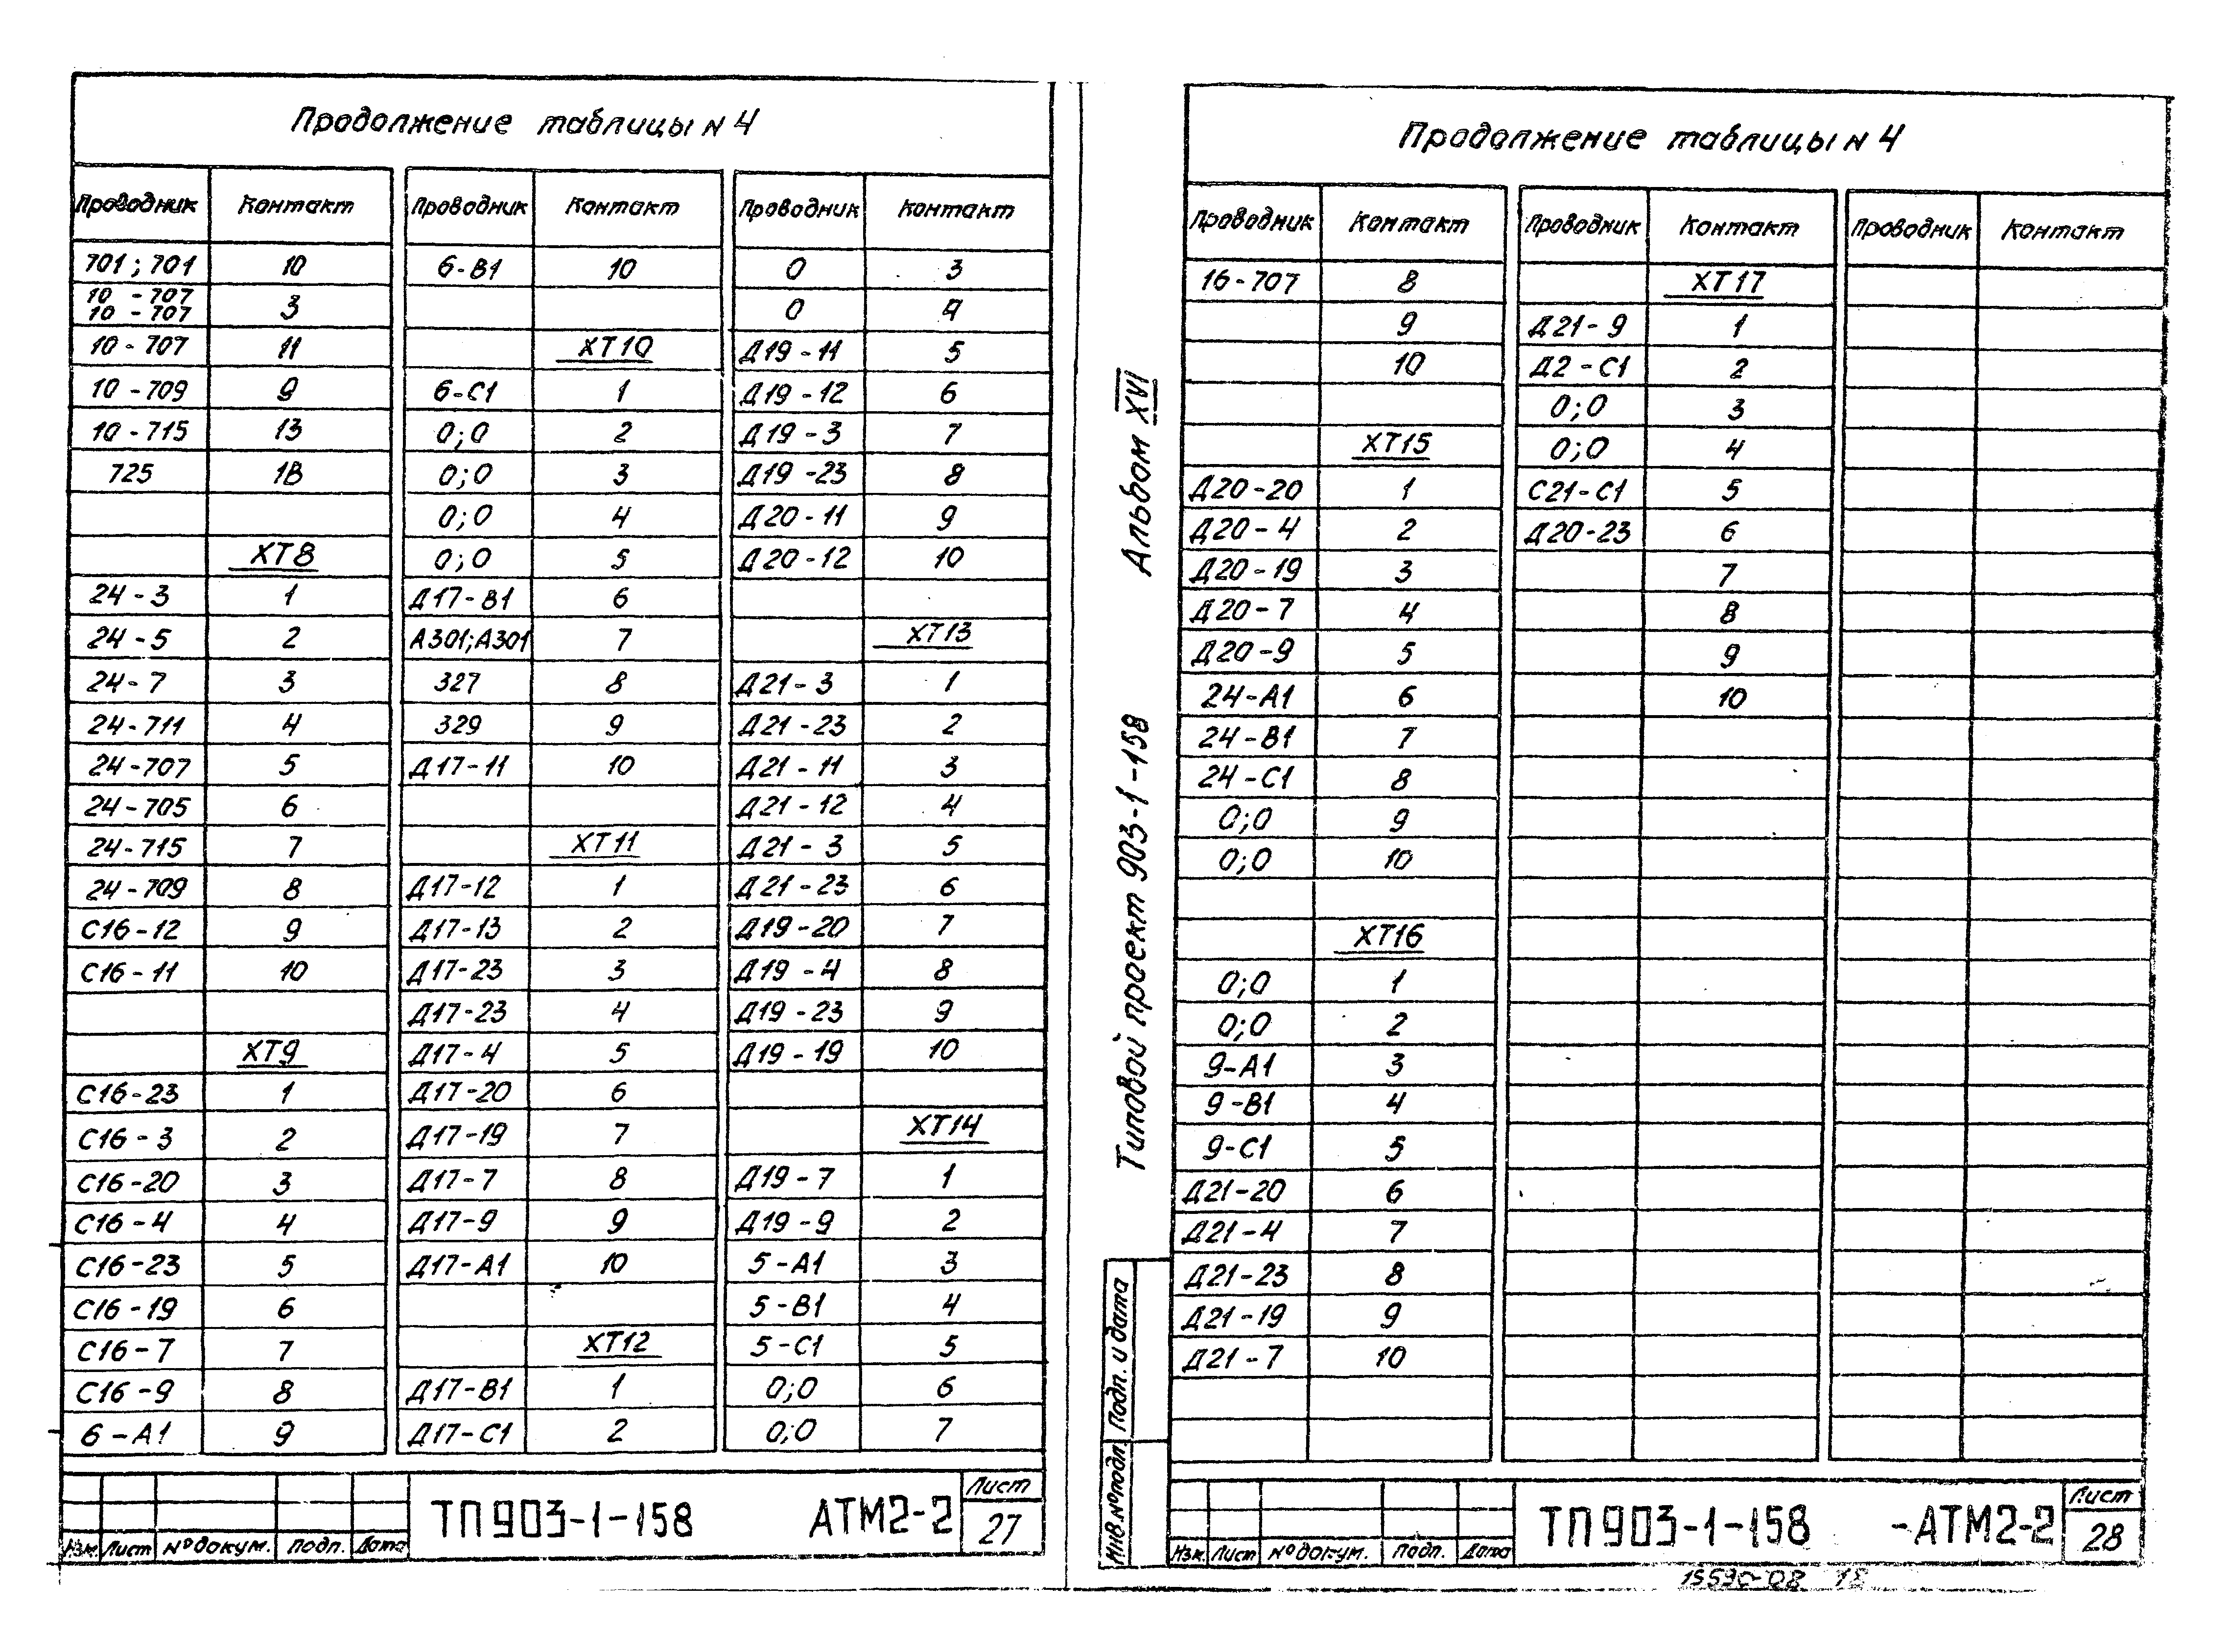 Продолжение таблицы N 4
Проводник Контакт Проводник Контакт Проводник Контакт
701; 701 10 6-В1 10 0 3
10 - 707
10 - 707 3 0 4
10 - 707 11 ХТ10 Д19-11 5
10 - 709 9 6-С1 1 Д19-12 6
10 - 715 13 0;0 2 Д19-3 7
725 1В 0;0 3 Д19-23 8
0;0 4 Д20-11 9
ХТ8 0;0 5 Д20-12 10
24-3 1 Д17-В1 6
24-5 2 А301;А301 7 ХТ13
24-7 3 327 8 Д21-3 1
24-711 4 329 9 Д21-23 2
24-707 5 Д17-11 10 Д21-11 3
24-705 6 Д21-12 4
24-715 7 ХТ11 Д21-3 5
24-709 8 Д17-12 1 Д21-23 6
С16-12 9 Д17-13 2 Д19-20 7
С16-11 10 Д17-23 3 Д19-4 8
Д17-23 4 Д19-23 9
ХТ9 Д17-4 5 Д19-19 10
С16-23 1 Д17-20 6
С16-3 2 Д17-19 7 ХТ14
С16-20 3 Д17-7 8 Д19-7 1
С16-4 4 Д17-9 9 Д19-9 2
С16-23 5 Д17-А1 10 5-А1 3
С16-19 6 5-В1 4
С16-7 7 ХТ12 5-С1 5
С16-9 8 Д17-В1 1 0;0 6
6-А1 9 Д17-С1 2 0;0 7
Изм. Лист № докум. Подп. Дата
ТП 903-1-158 АТМ2-2
Лист
27
Альбом XVI
Типовой проект 903-1-158
Подп. и дата
Инв.№ подл.
Продолжение таблицы N 4
Проводник Контакт Проводник Контакт Проводник Контакт
16-707 8 ХТ17
9 Д21-9 1
10 Д2-С1 2
0;0 3
ХТ15 0;0 4
Д20-20 1 С21-С1 5
Д20-4 2 Д20-23 6
Д20-19 3 7
Д20-7 4 8
Д20-9 5 9
24-А1 6 10
24-В1 7
24-С1 8
0;0 9
0;0 10
ХТ16
0;0 1
0;0 2
9-А1 3
9-В1 4
9-С1 5
Д21-20 6
Д21-4 7
Д21-23 8
Д21-19 9
Д21-7 10
Изм. Лист № докум. Подп. Дата
ТП 903-1-158 -АТМ2-2
Лист
28